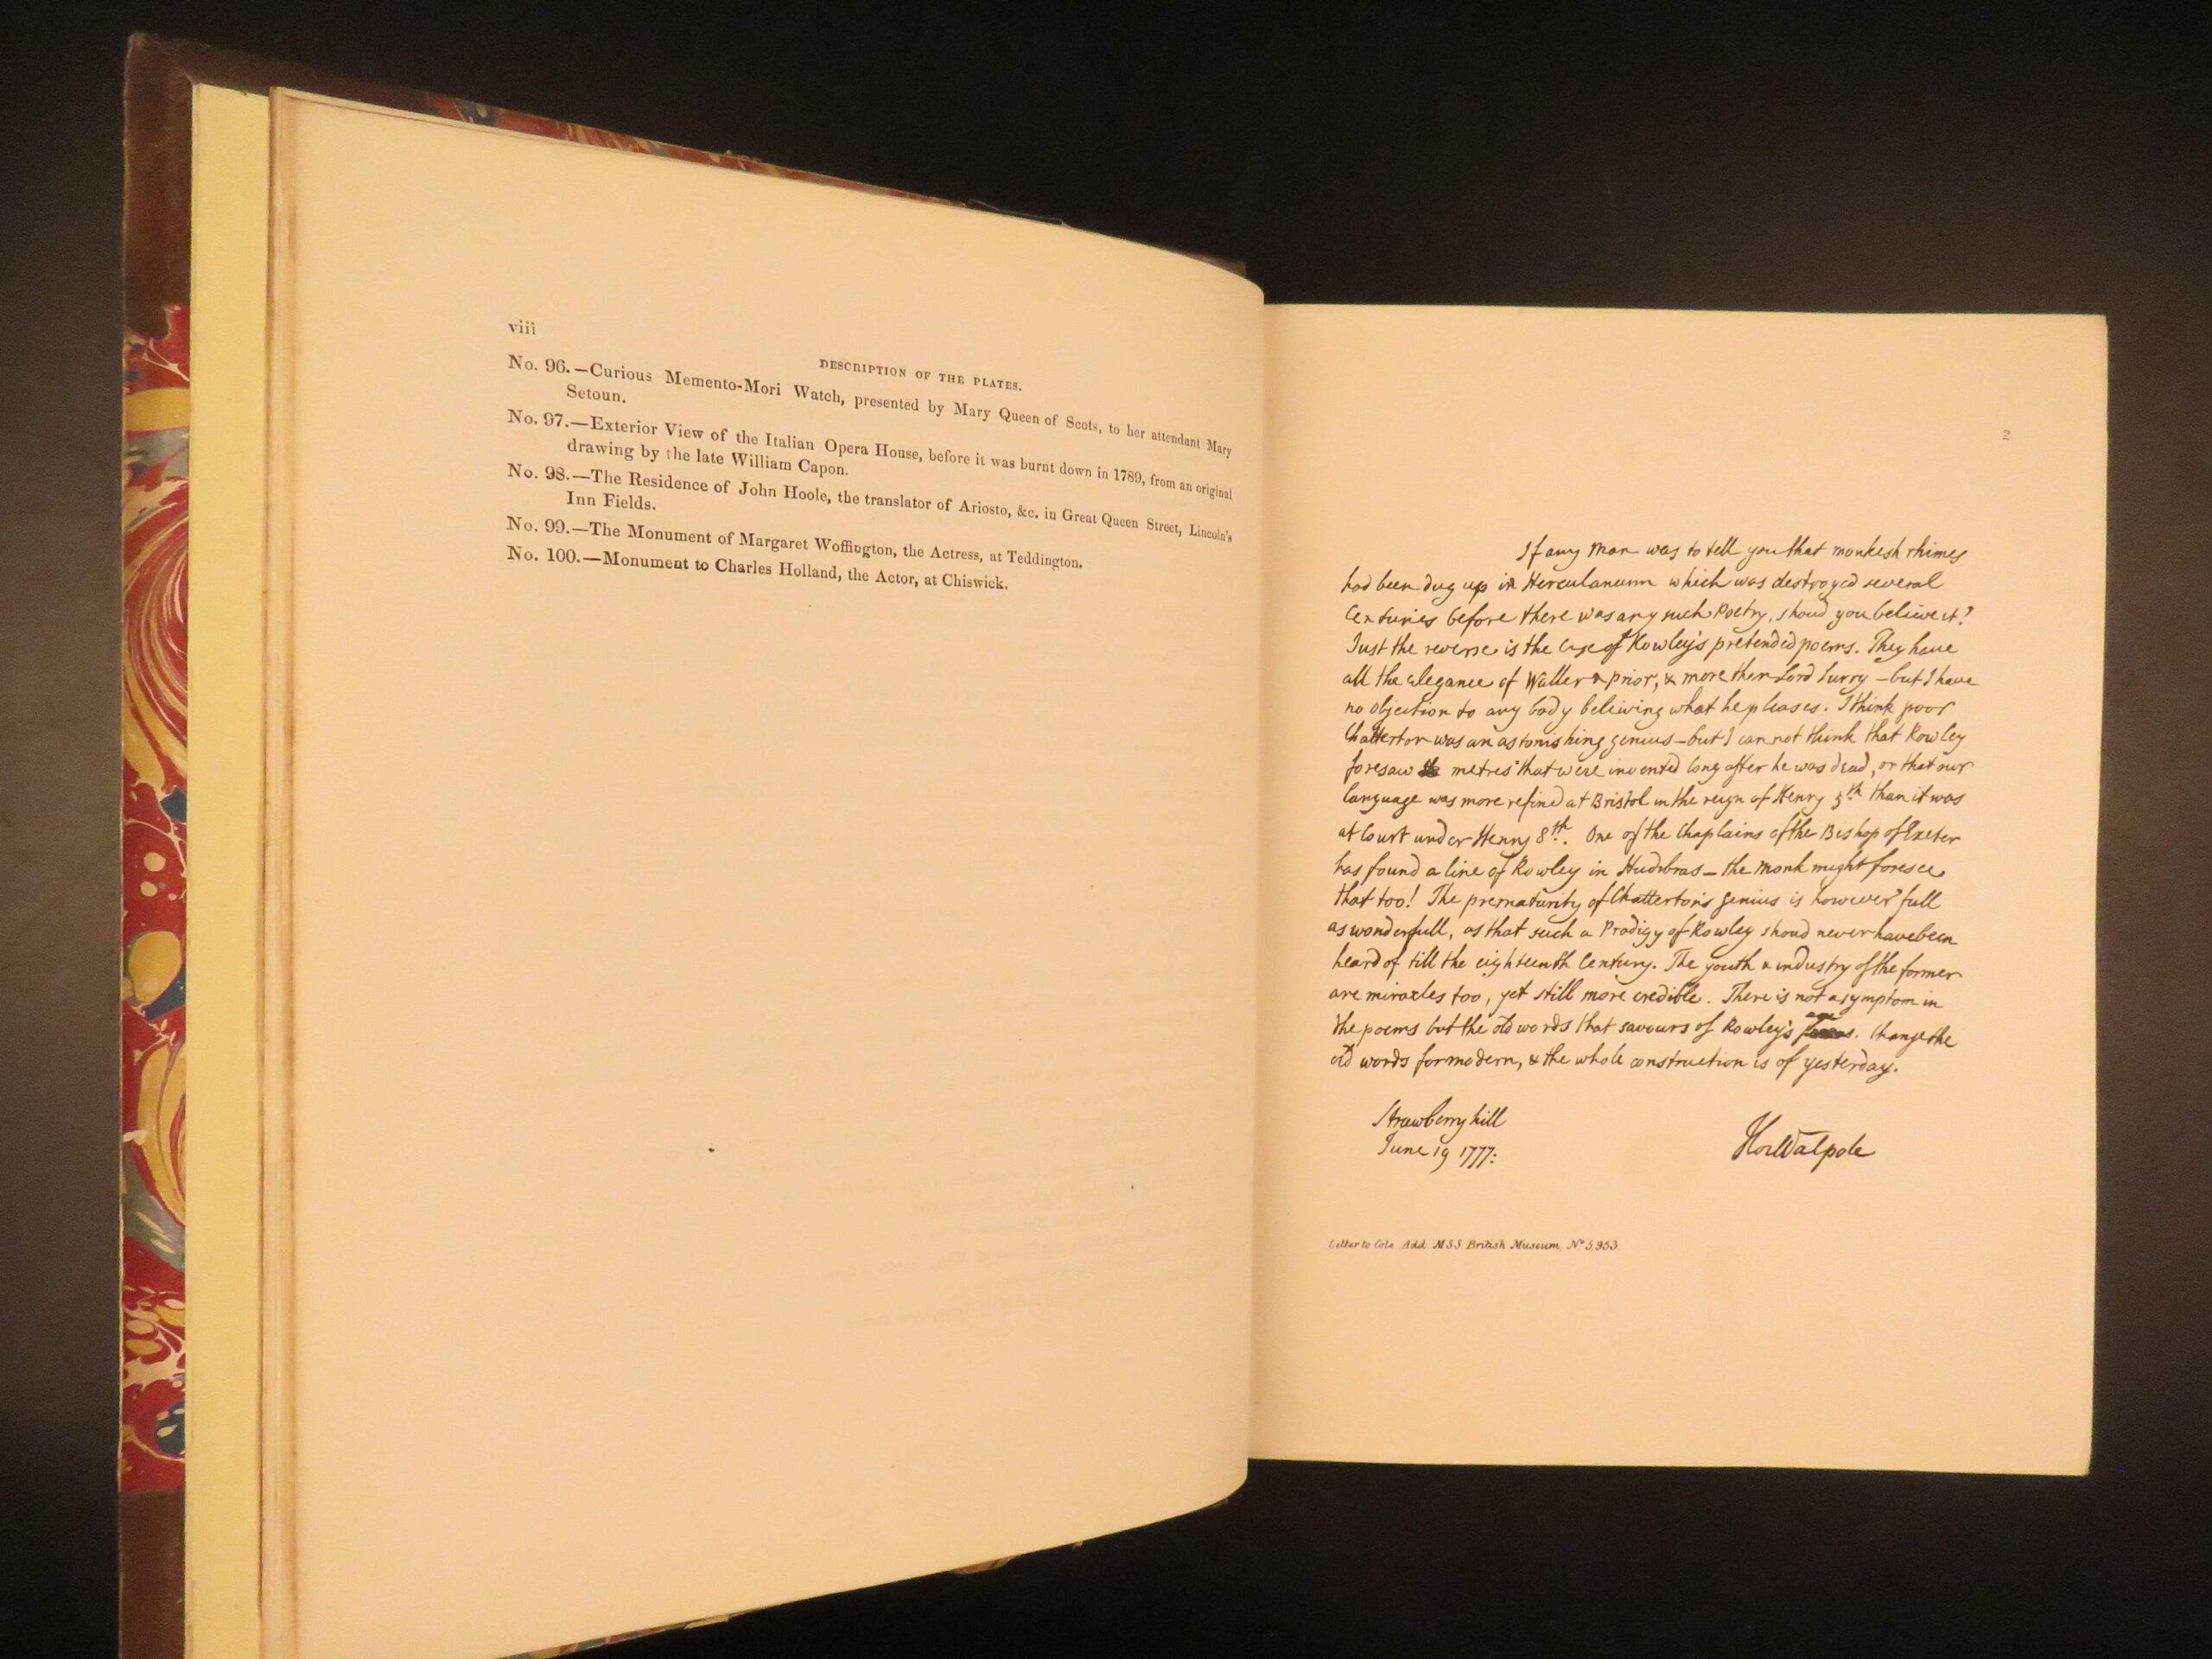 viii
DESCRIPTION OF THE PLATES.
No. 96.—Curious Memento-Mori Watch, presented by Mary Queen of Scots, to her attendant Mary
Setoun.
No. 97.—Exterior View of the Italian Opera House, before it was burnt down in 1789, from an original
drawing by the late William Capon.
No. 98.—The Residence of John Hoole, the translator of Ariosto, &c. in Great Queen Street, Lincoln's
Inn Fields.
No. 99.—The Monument of Margaret Woffington, the Actress, at Teddington.
No. 100.—Monument to Charles Holland, the Actor, at Chiswick.
2
If any Man was to tell you that monkish rhimes
had been dug up in Herculaneum which was destroyed several
Centuries before there was any such Poetry, shoud you believe it?
Just the reverse is the Case of Rowley's pretended poems. They have
all the elegance of Waller & prior, & more than Lord Surry – but I have
no objection to any body believing what he pleases. I think poor
Chatterton was an astonishing genius – but I cannot think that Rowley
foresaw metres that were invented long after he was dead, or that our
language was more refined at Bristol in the reign of Henry 5th than it was
at Court under Henry 8th. One of the Chaplains of the Bishop of Exeter
has found a line of Rowley in Hudibras – the Monk might foresee
that too! The prematurity of Chatterton's genius is however full
as wonderfull, as that such a Prodigy of Rowley shoud never have been
heard of till the eighteenth Century. The youth & industry of the former
are miracles too, yet still more credible. There is not a symptom in
the poems but the old words that savours of Rowley's age. Change the
old words for modern, & the whole construction is of yesterday.
Strawberry hill
June 19 1777:
Hor Walpole
Letter to Cole Add. MSS British Museum, No 5,953.